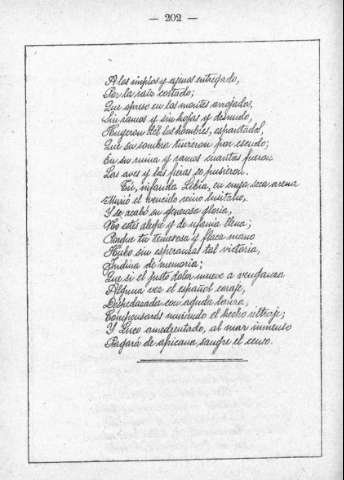 — 202 —
A los impíos y ajenos entregado,
Por la raíz cortado;
Que opreso en los montes arrojados,
Sin ramos y sin hojas y desnudo,
Huyeron dél los hombres, espantados,
Que su sombra tuvieron por escudo;
En su ruina y ramos cuantas fueron
Las aves y las fieras se pusieron.
Tú, infanda Libia, en cuya seca arena
Murió el vencido reino lusitano,
Y se acabó su generosa gloria,
No estés alegre y de ufanía llena;
Porque tu temerosa y flaca mano
Hubo sin esperanza tal victoria,
Indina de memoria;
Que si el justo dolor mueve a venganza
Alguna vez el español coraje,
Despedazada con aguda lanza,
Compensarás muriendo el hecho ultraje;
Y Luco amedrentado, al mar inmenso
Pagará de africana sangre el censo.